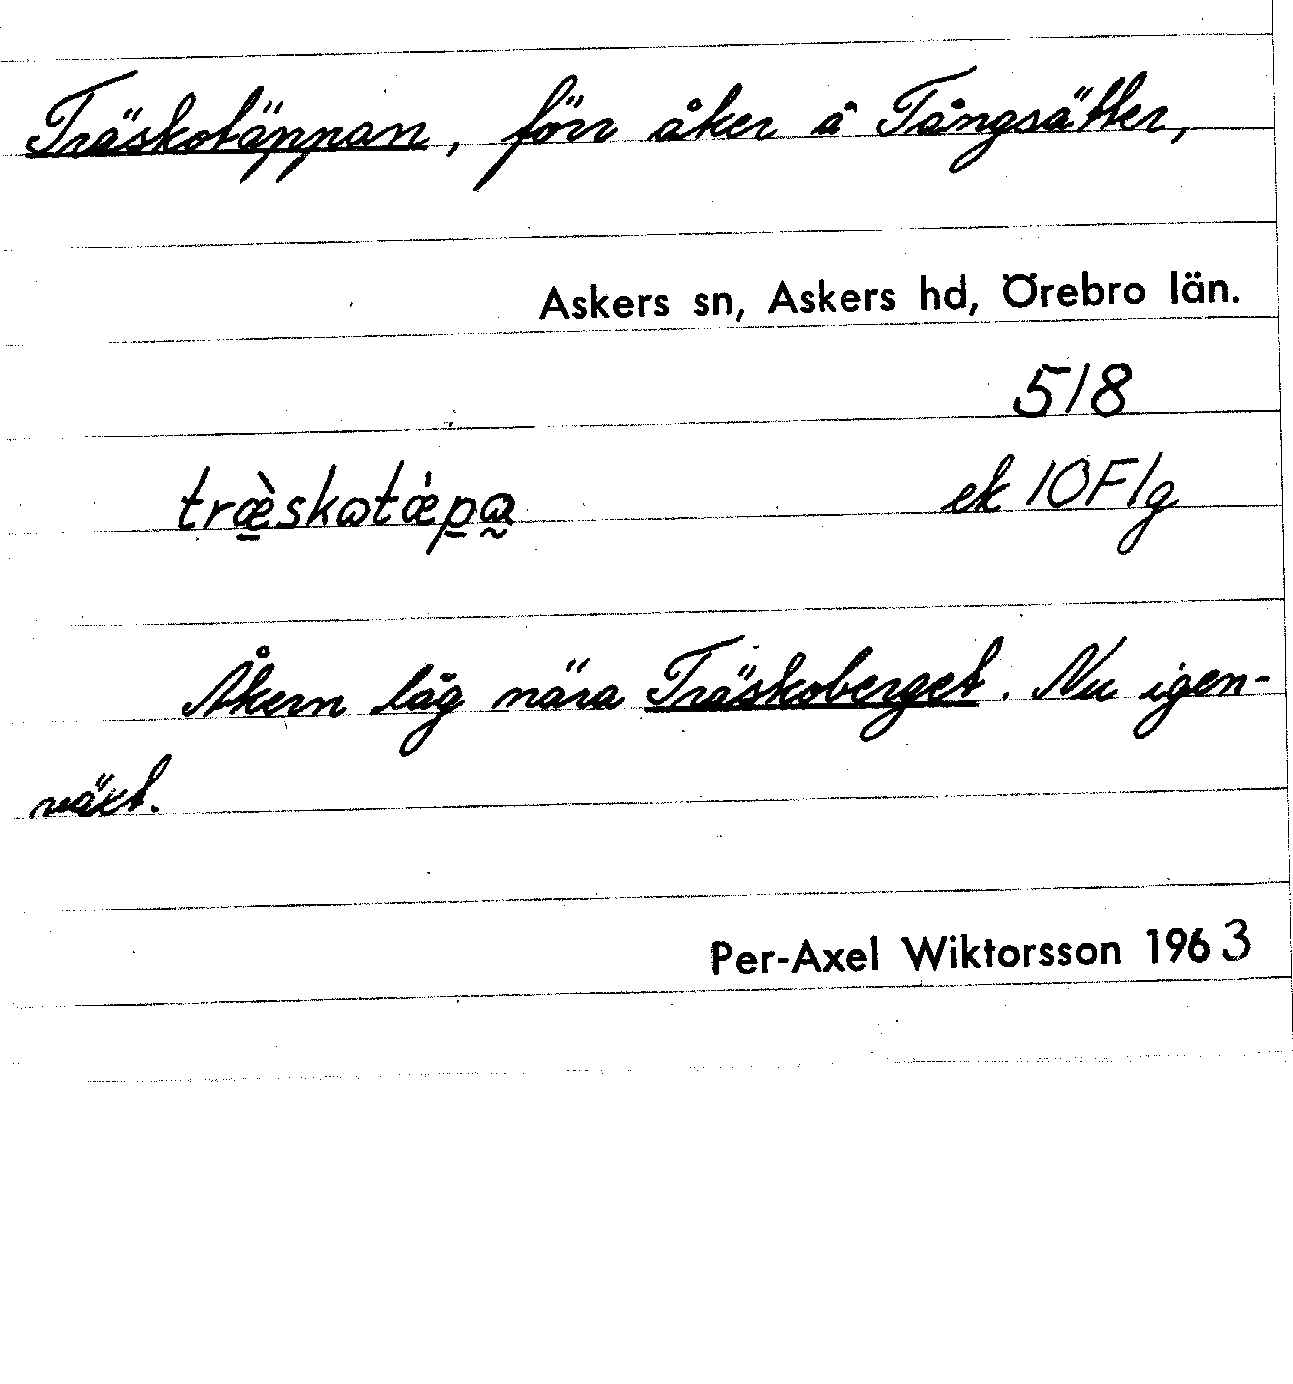 Träskotäppan, förr åker å Tångsätter,
Askers sn, Askers hd, Örebro län.
518
træ̀skɷtǽpɷ̰ ek 10F1g
Åkern låg nära Träskoberget. Nu igen-
växt.
Per-Axel Wiktorsson 1963